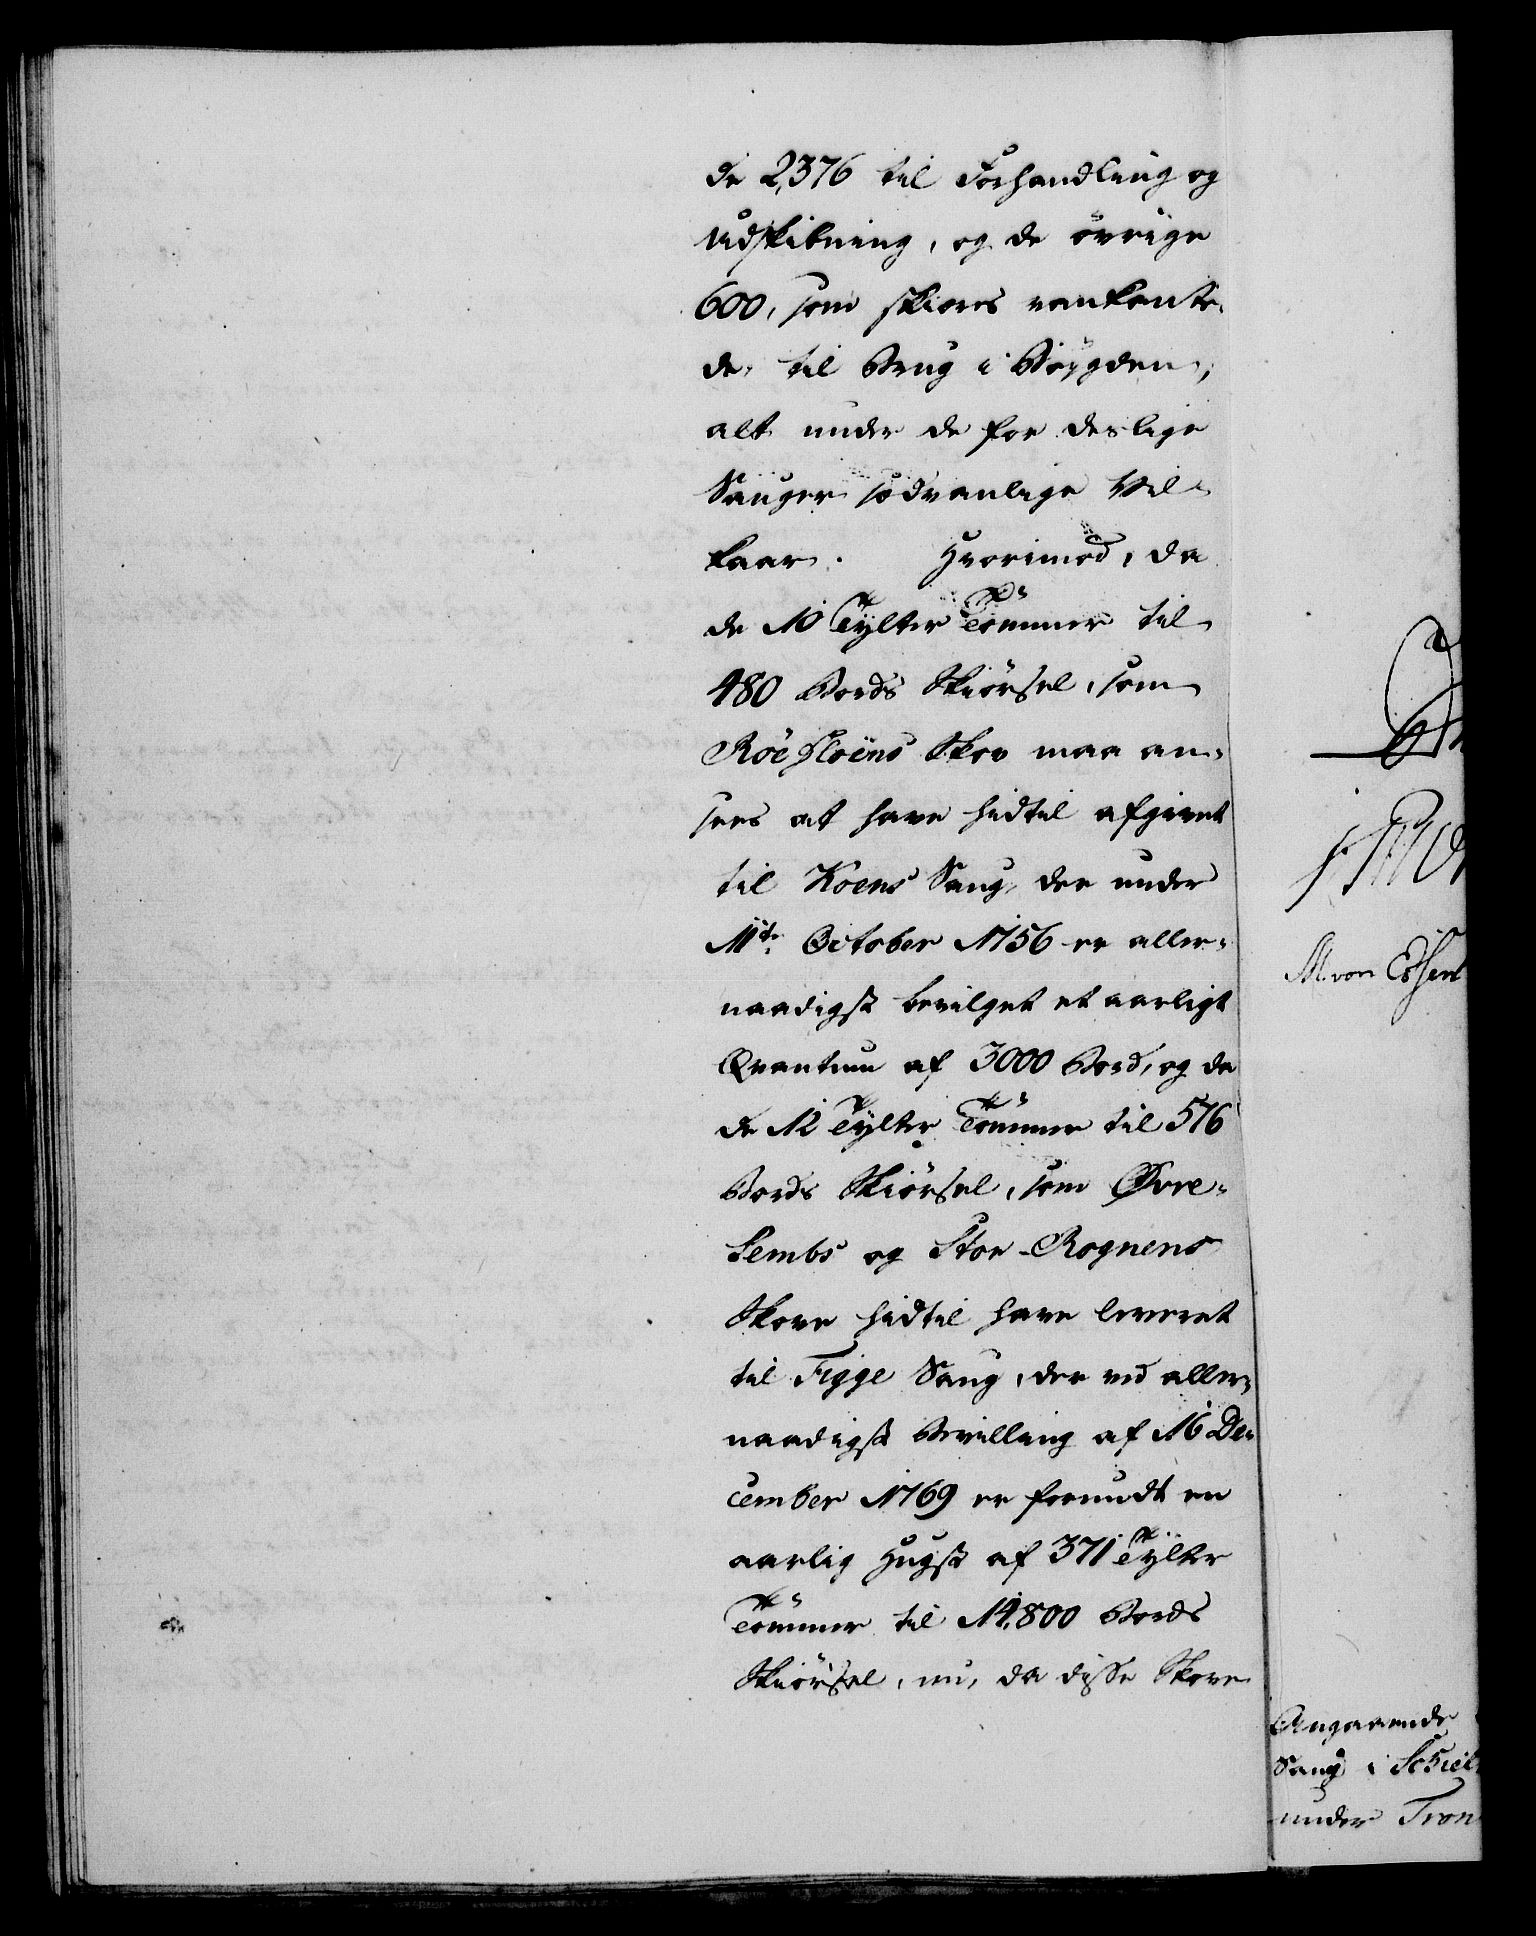 de 2,376 til Forhandling og
Udskibning, og de övrige
600, som skiæres vankante-
de, til Brug i Böÿgden,
alt under de for deslige
Sauger sædvanlige Vil-
kaar. Hvorimod, da
de 10 Tÿlter Tömmer til
480 Bords Skiörsel, som
Röe Floÿens Skov maa an-
sees at have hidtil afgivet
til Koens Saug, der under
11te October 1756 er aller-
naadigst bevilget et aarligt
Qvantum af 3000 Bord, og da
de 12 Tÿlter Tömmer til 576
Bords Skiörsel, som Øvre-
Lembs og Stor-Rognens
Skove hidtil have leveret
til Figge Saug, der ved aller-
naadigst Bevilling af 16 De-
cember 1769 er forundt en
aarlig Hugst af 371 Tÿlter
Tömmer til 14,800 Bords
Skiörsel, nu, da disse Skove
M. von Essen
Angaaende
Saug i
under Tron